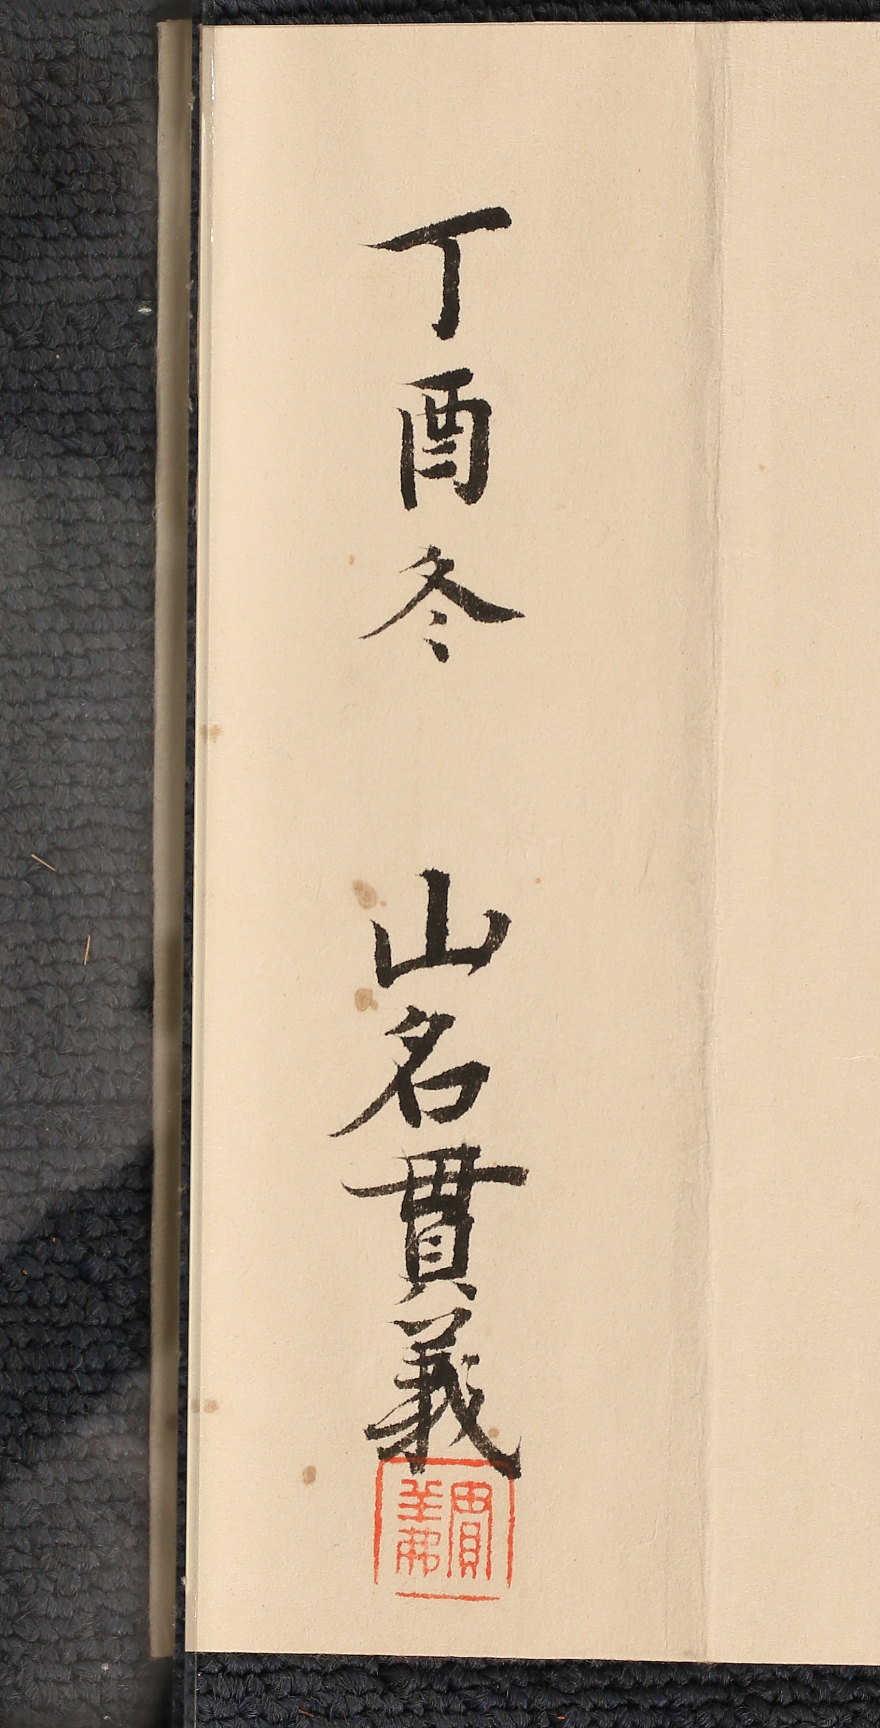 丁酉冬 山名貫義
貫義